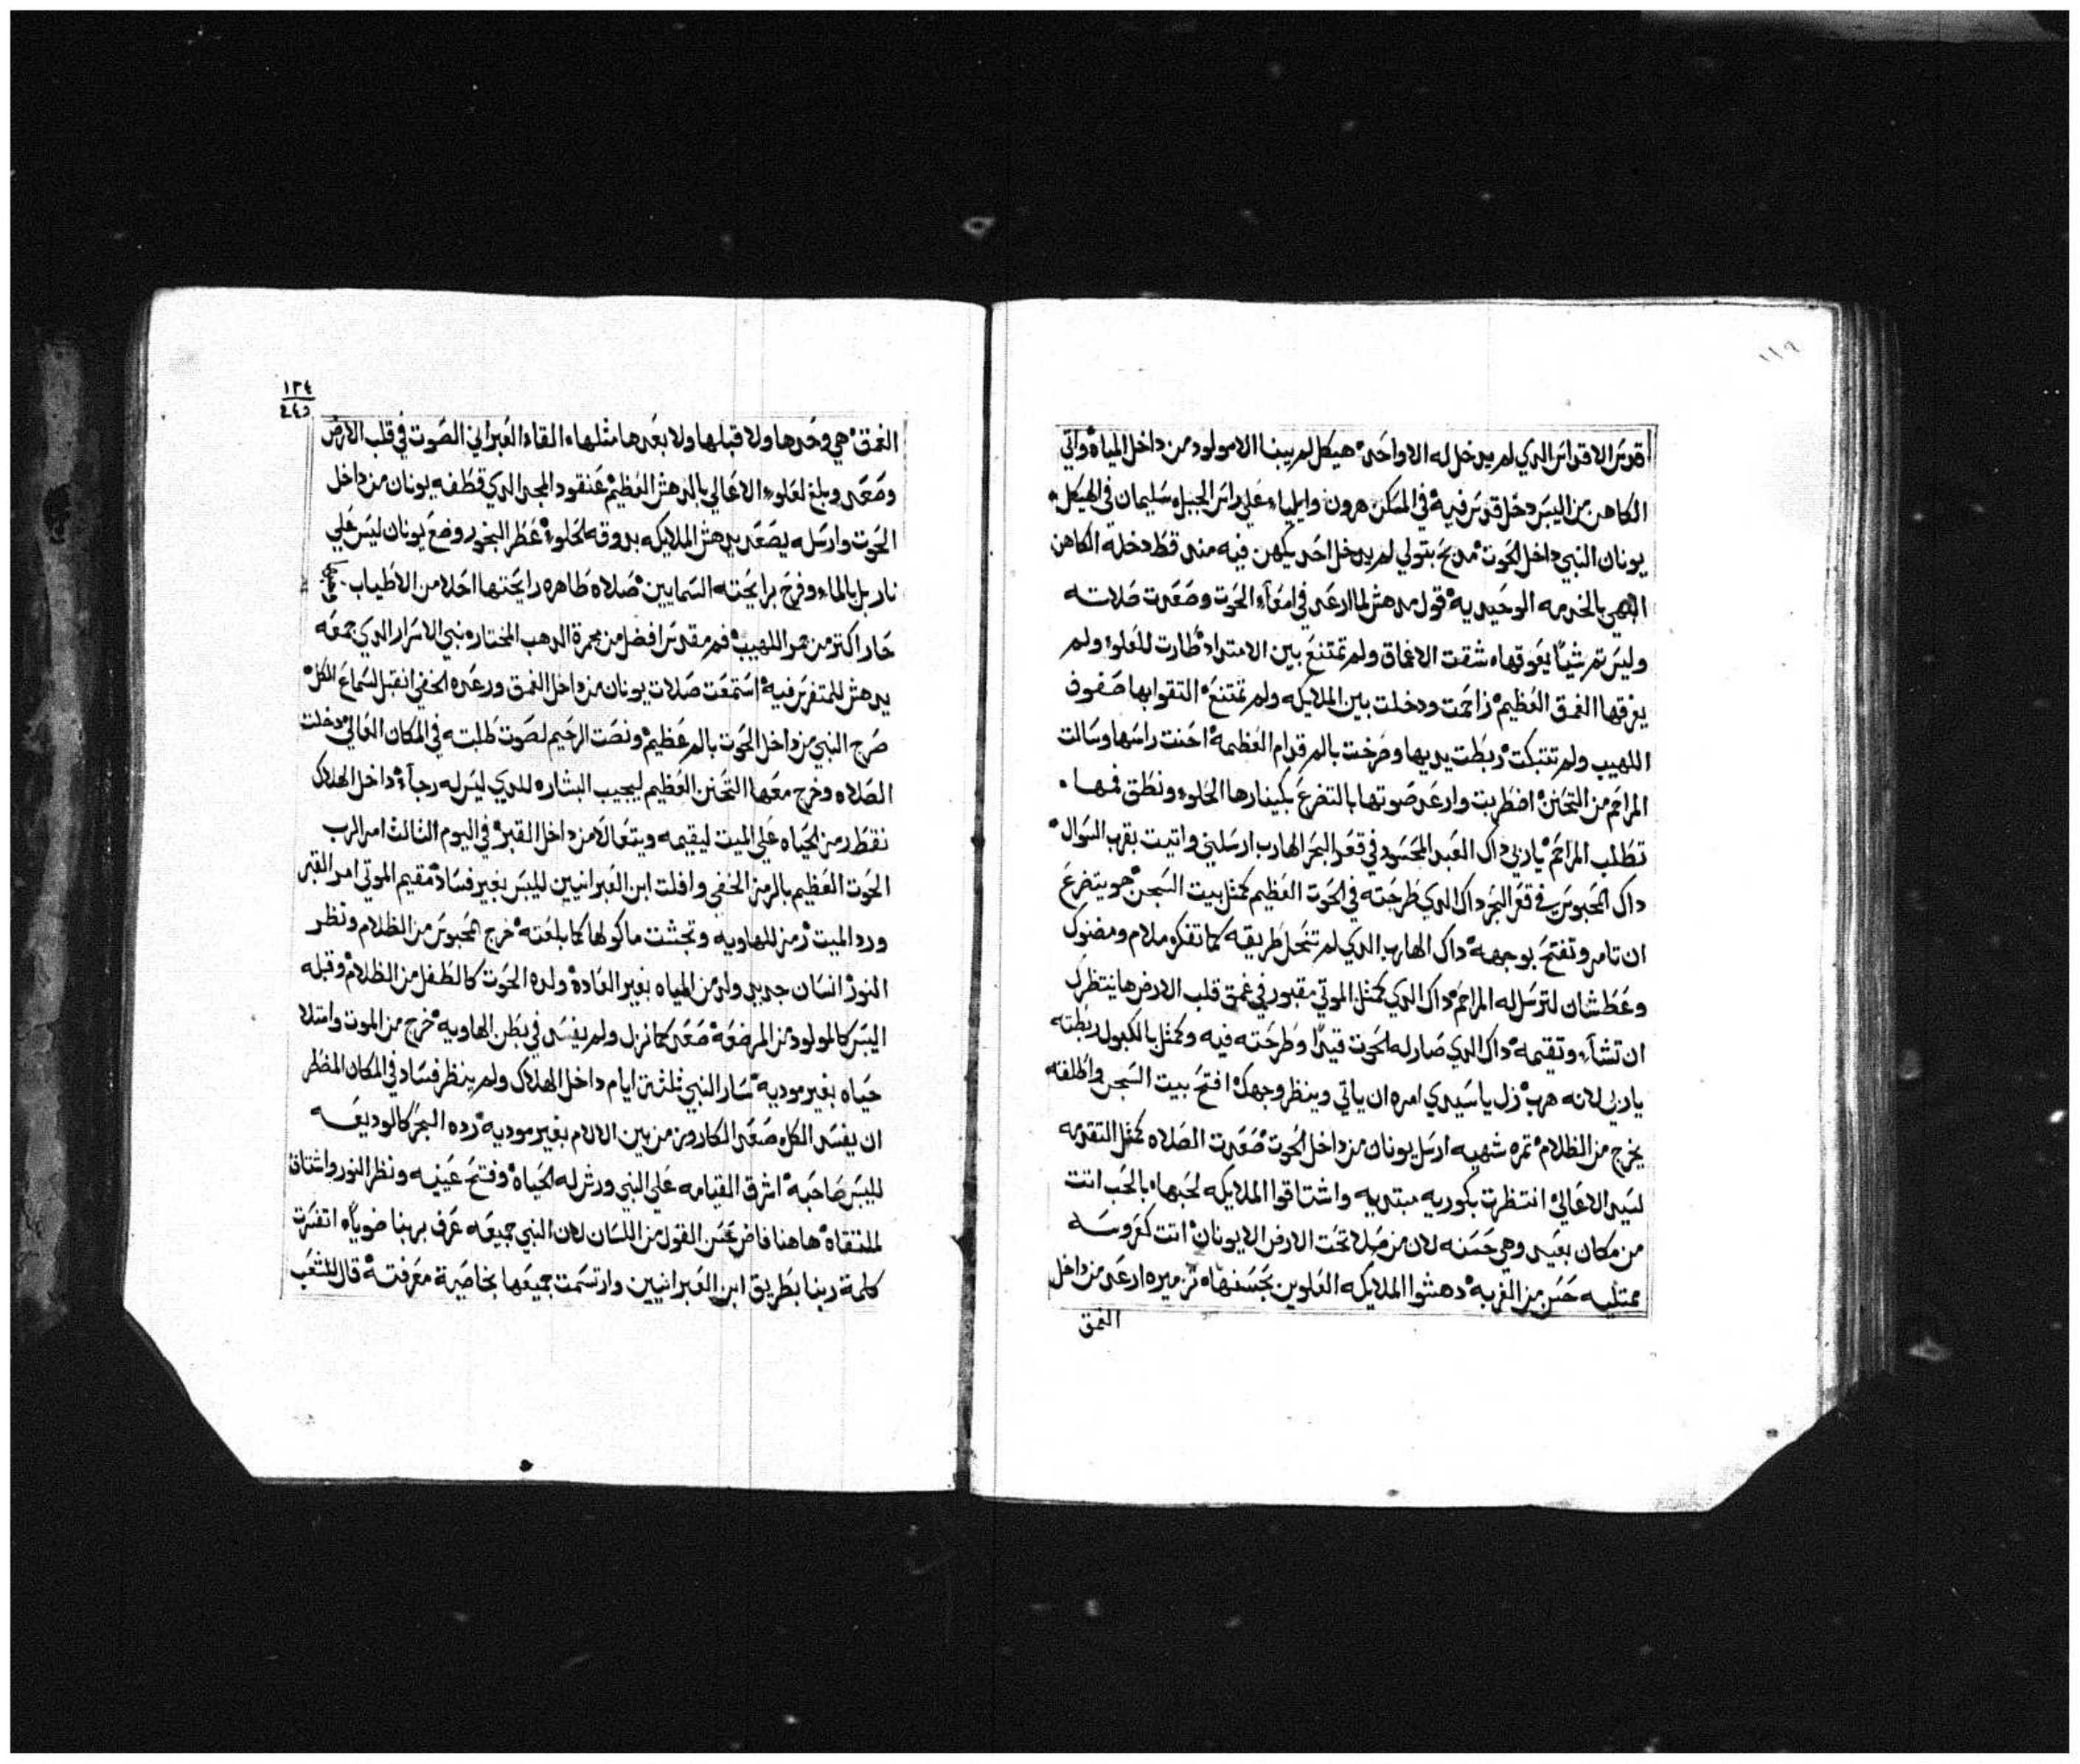 ١١٩
قدس الاقداس الدي لم يدخل له الا واحد هيكل لم يبنا الا مولود من داخل المياه واتي
الكاهن من اليبس دخل قدس فيه في المسكن هرون وايلياء علي راس الجبل سليمان في الهيكل
يونان النبي داخل الحوت مدبح بتولي لم يدخل احد يكهن فيه مند قط دخله الكاهن
الالهي بالخدمه الوحيديه قول مدهش لما ارعد في امعاء الحوت وصعدت صلاته
وليس تم شياً يعوقها شقت الاعماق ولم تمتنع بين الامتداد طارت للعلو ولم
يغرقها الغمق العظيم زاحمت ودخلت بين الملايكه ولم تمتنع التقوا بها صفوف
اللهيب ولم تتبكت ربطت يديها وصرخت بالم قدام العظيمه احنت راسها وسالت
المراحم من التحنن اضطربت وارعد صوتها بالتضرع بكينارها الحلو ونطق فمها
تطلب المراحم يا ربي داك العبد المحسود في قعر البحر الهارب ارسلني واتيت بقرب السوال
داك المحبوس في قعر البحر داك الدي طرحته في الحوت العظيم كمثل بيت السجن هو يتضرع
ان تامر وتفتح بوجهه داك الهارب الدي لم تنحل طريقه كما تفكر ملام ومضنوك
وعطشان لترسل له المراحم داك الدي كمثل الموتي مقبور في غمق قلب الارض ها ينتظرك
ان تشاء وتقيمه داك الدي صار له الحوت قيداً وطرحته فيه وكمثل بالكبول ربطته
يا ربي لانه هرب زل يا سيدي امره ان ياتي وينظر وجهك افتح بيت السجن واطلقه
يخرج من الظلام تمره شهيه ارسل يونان من داخل الحوت صعدت الصلاه كمثل التقدمه
لسيد الاعالي انتظرت بكوريه مبتديه واشتاقوا الملايكه لحبها بالحب اتت
من مكان بعيد وهي حسنه لان من صلا تحت الارض الا يونان اتت كعروسه
ممتليه حسن من الغربه دهشوا الملايكه العلوين بحسنها تزميره ارعد من داخل
الغمق
١٢٤
٢٤٥
الغمق هي وحدها ولا قبلها ولا بعدها مثلها القاء العبراني الصوت في قلب الارض
وصعد وبلغ لعلو الاعالي بالدهش العظيم عنقود المجد الدي قطفه يونان من داخل
الحوت وارسله يصعد يدهش الملايكه بدوقه الحلو عطر البخور وضع يونان ليس علي
نار بل بالماء وفرح برايحته السمايين صلاه طاهره رايحتها احلا من الاطياب
حار اكتر من جمر اللهيب فم مقدس افضل من مجمرة الدهب المختاره نبي الاسرار الدي جمعه
يدهش للمتفرس فيه استمعت صلات يونان من داخل الغمق ورعده الخفي انقبل لسماع الكل
صرخ النبي من داخل الحوت بالم عظيم ونصت الرحيم لصوت طلبته في المكان العالي دخلت
الصلاه وخرج معها التحنن العظيم ليجيب البشاره للدي ليس له رجاء داخل الهلاك
نقط رمز الحياه علي الميت ليقيمه ويتعالا من داخل القبر في اليوم التالت امر الرب
الحوت العظيم بالرمز الخفي وافلت ابن العبرانيين لليبس بغير فساد مقيم الموتي امر القبر
ورد الميت رمز للهاويه وتجشت ماكولها كما بلعته خرج المحبوس من الظلام ونظر
النور انسان جديد ولد من المياه بغير العاده ولده الحوت كالطفل من الظلام وقبله
اليبس كالمولود من المرضعه صعد كما نزل ولم يفسد في بطن الهاويه خرج من الموت وامتلا
حياه بغير موديه سار النبي ثلثة ايام داخل الهلاك ولم ينظر فساد في المكان المضطر
ان يفسد الكل صعد الكاروز من بين الالام بغير موديه رده البحر كالوديعه
لليبس صاحبه اشرق القيامه علي النبي ورش له الحياه وفتح عينيه ونظر النور واشتاق
لملتقاه هاهنا فاض بحسن القول من اللسان لان النبي جميعه عرف بربنا ضوياً اتفسرت
كلمة ربنا بطريق ابن العبرانيين وارتسمت جميعها بخاصية معرفته قال للشعب